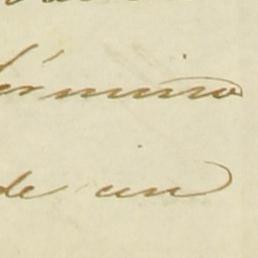 término
de un